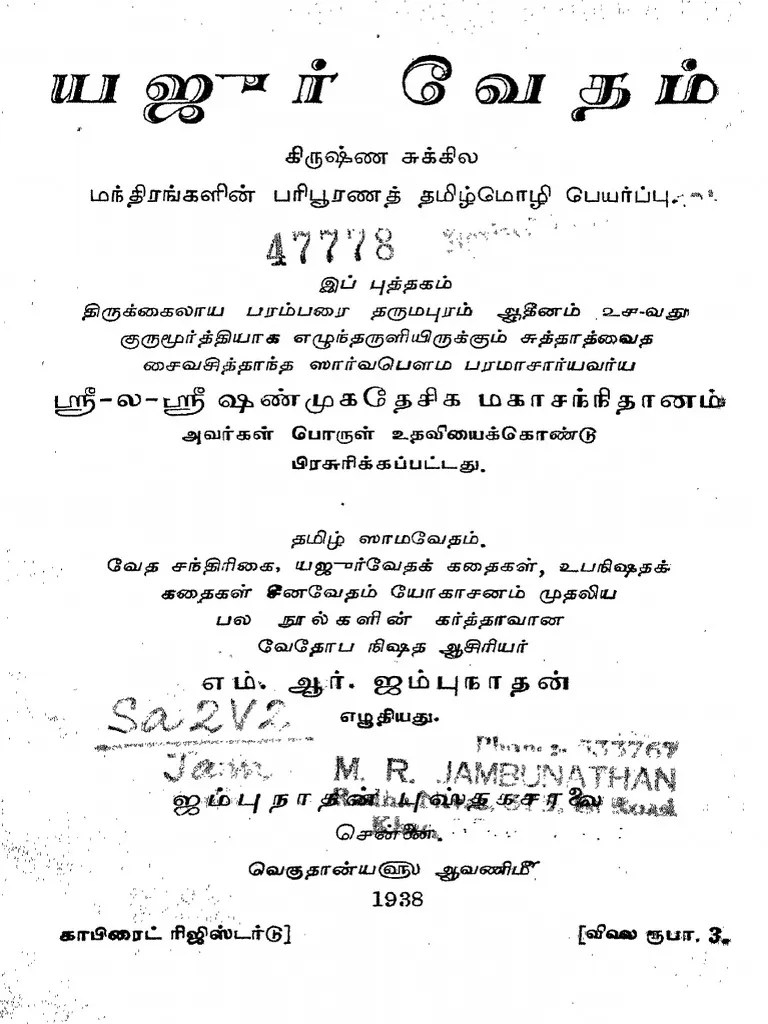 யஜுர் வேதம்
கிருஷ்ண சுக்கில
மந்திரங்களின் பரிபூரணத் தமிழ்மொழி பெயர்ப்பு.
47778
இப் புத்தகம்
திருக்கைலாய பரம்பரை தருமபுரம் ஆதீனம் உச-வது
குருமூர்த்தியாக எழுந்தருளியிருக்கும் சுத்தாத்வைத
சைவசித்தாந்த ஸார்வபௌம பரமாசார்யவர்ய
ஸ்ரீ-ல-ஸ்ரீ ஷண்முகதேசிக மகாசந்நிதானம்
அவர்கள் பொருள் உதவியைக்கொண்டு
பிரசுரிக்கப்பட்டது.
தமிழ் ஸாமவேதம்.
வேத சந்திரிகை, யஜுர்வேதக் கதைகள், உபநிஷதக்
கதைகள் சீனவேதம் யோகாசனம் முதலிய
பல நூல்களின் கர்த்தாவான
வேதோப நிஷத ஆசிரியர்
எம். ஆர். ஜம்புநாதன்
எழுதியது.
Sa2V2
Jam
Phone :- 333767
M. R. JAMBUNATHAN
Road
ஜம்புநாதன் புஸ்தகசாலை
சென்னை.
வெகுதான்ய௵ ஆவணி௴
1938
காபிரைட் ரிஜிஸ்டர்டு]
[விலை ரூபா. 3.